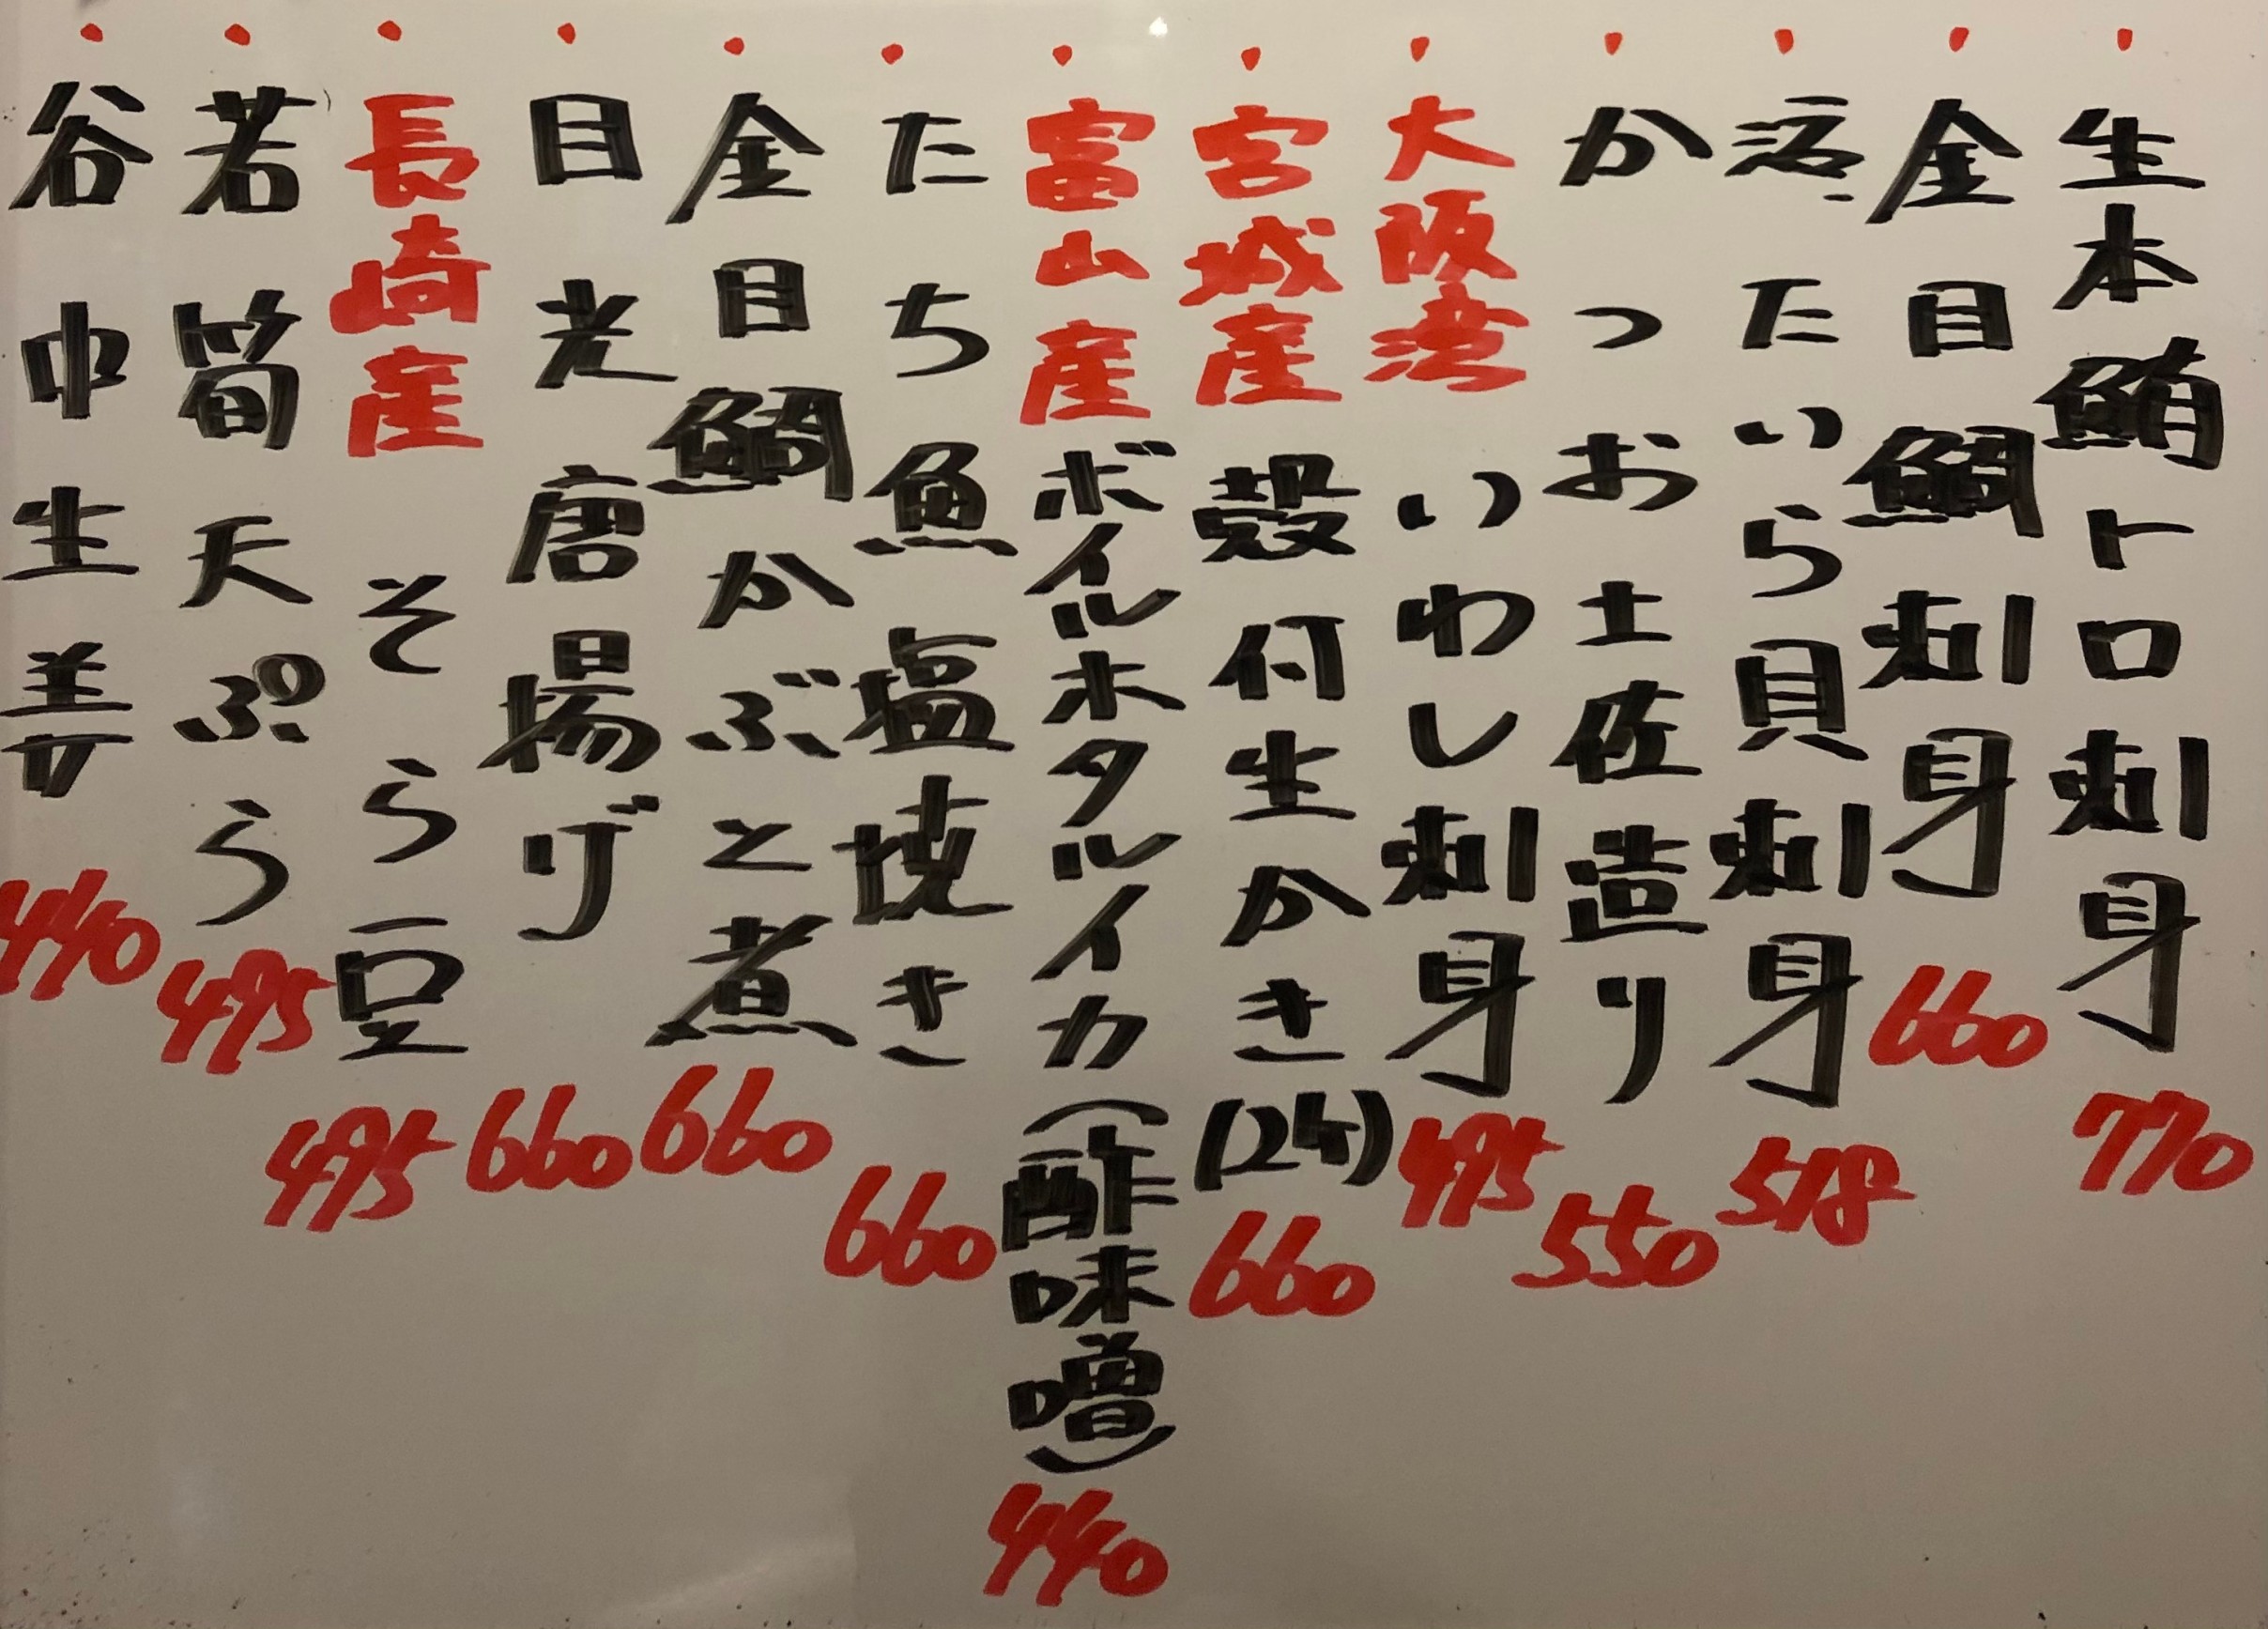 ・生本鮪トロ刺身 770
・金目鯛刺身 660
・活たいら貝刺身 518
・かつお土佐造り 550
・大阪湾いわし刺身 495
・宮城産殻付生かき(2ヶ) 660
・富山産ボイルホタルイカ(酢味噌) 440
・たち魚塩焼き 660
・金目鯛かぶと煮 660
・目光唐揚げ 660
・長崎産そら豆 495
・若筍天ぷら 495
・谷中生姜 440